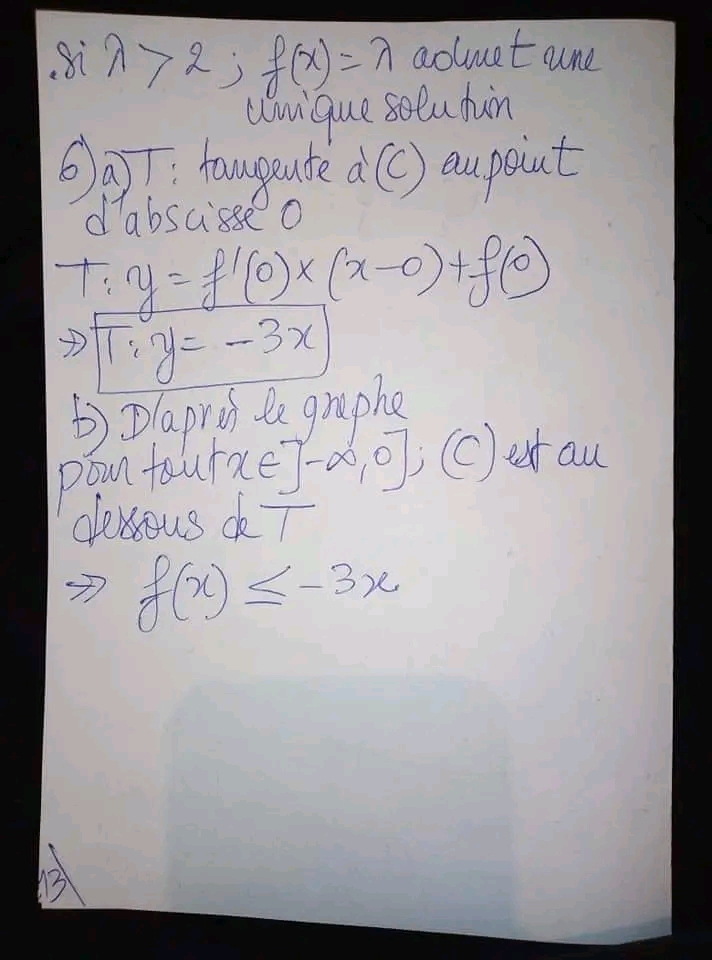 . si λ > 2 ; f(x) = λ admet une
unique solution
6) a) T : tangente à (C) au point
d'abscisse 0
T : y = f'(0) × (x-0) + f(0)
⇒ T : y = -3x
b) D'après le graphe
pour tout x ∈ ]-∞, 0] ; (C) est au
dessous de T
⇒ f(x) ≤ -3x
13